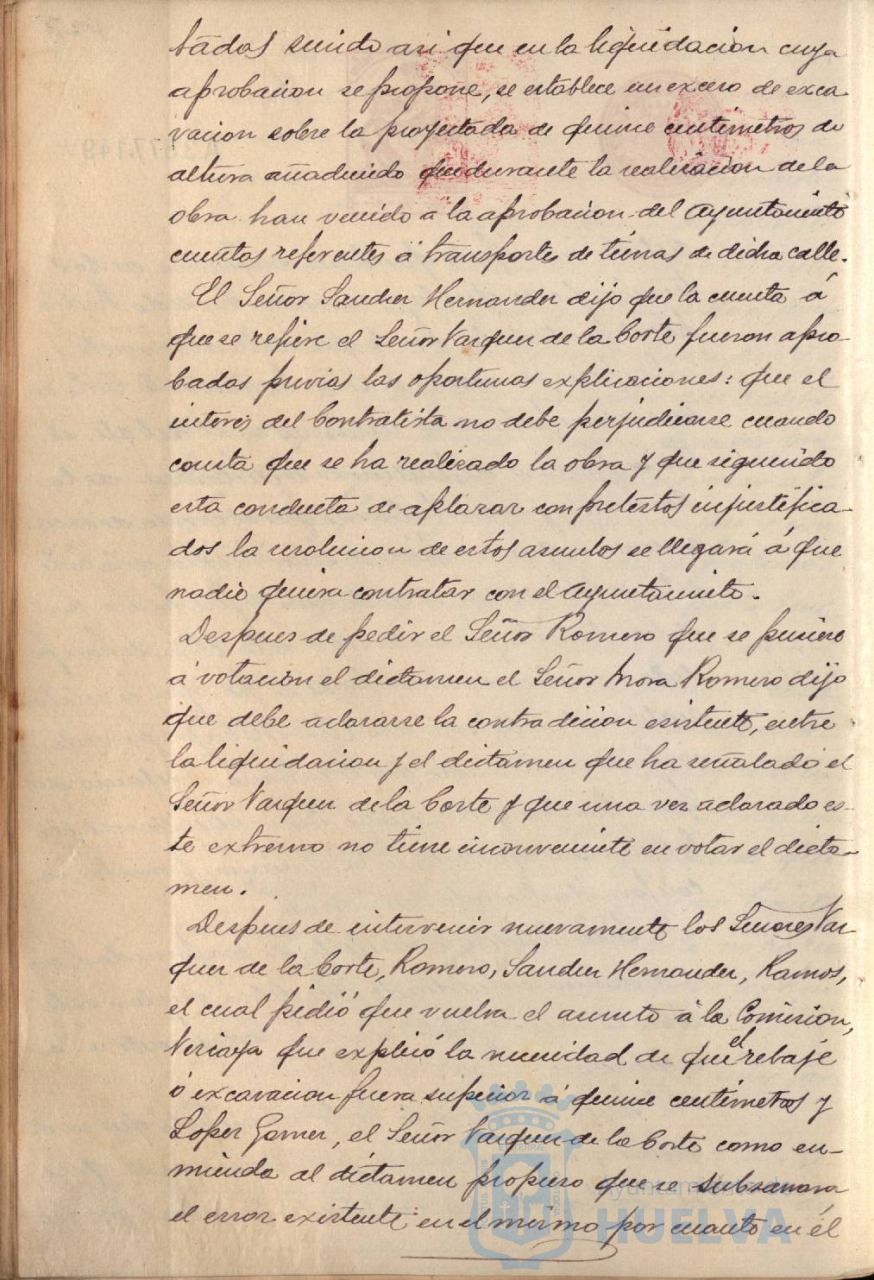 tados siendo asi que en la liquidacion cuya
aprobacion se propone, se establece un exceso de exca
vacion sobre la proyectada de quince centímetros de
altura añadiendo que durante la realizacion de la
obra han venido á la aprobacion del Ayuntamiento
cuentas referentes á transportes de tierras de dicha calle.
El Señor Sanchez Hernandez dijo que la cuenta á
que se refiere el Señor Vazquez de la Corte fueron apro-
badas previas las oportunas explicaciones: que el
interes del Contratista no debe perjudicarse cuando
consta que se ha realizado la obra y que siguiendo
esta conducta de aplazar con pretestos injustifica-
dos la resolucion de estos asuntos se llegará á que
nadie quiera contratar con el Ayuntamiento.
Despues de pedir el Señor Romero que se pusiera
á votacion el dictamen el Señor Mora Romero dijo
que debe aclararse la contradicion esistente, entre
la liquidacion y el dictamen que ha señalado el
Señor Vazquez de la Corte y que una vez aclarado es-
te extremo no tiene inconveniente en votar el dicta-
men.
Despues de intervenir nuevamente los Señores Vaz-
quez de la Corte, Romero, Sanchez Hernandez, Ramos,
el cual pidió que vuelva el asunto á la Comision,
que explicó la necesidad de que el rebaje
ó excavacion fuera superior á quince centímetros y
Lopez Gomez, el Señor Vazquez de la Corte como en-
mienda al dictamen propuso que se subsanara
el error existente en el mismo por cuanto en él
Ayuntamiento
HUELVA